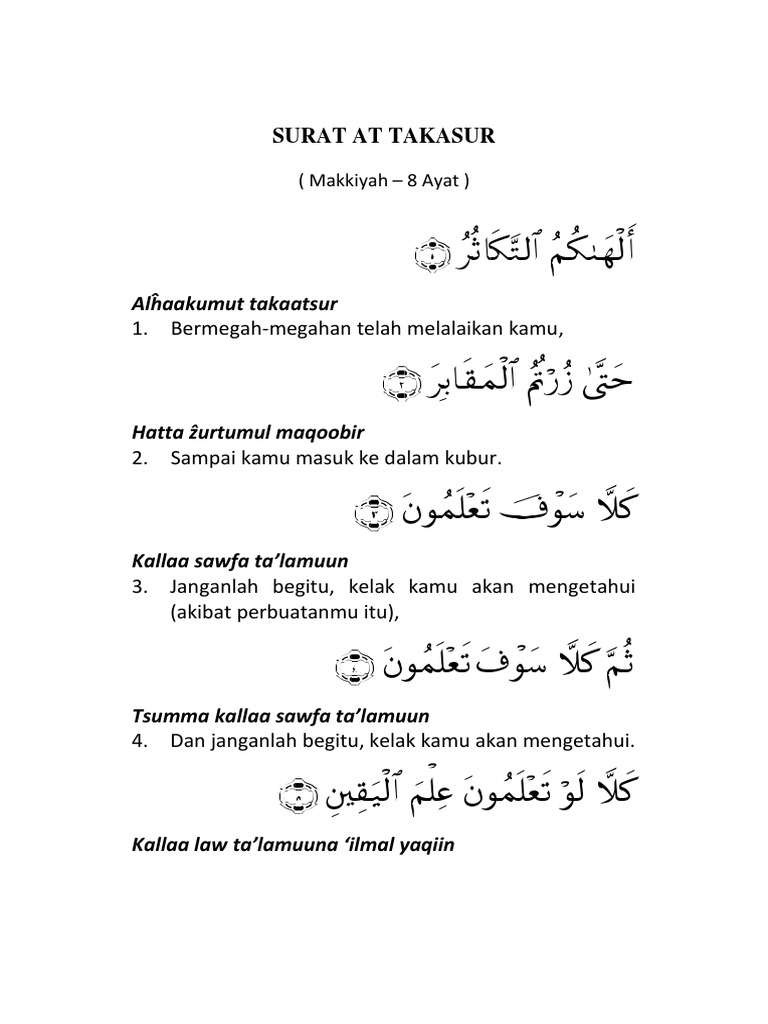 SURAT AT TAKASUR
( Makkiyah – 8 Ayat )
أَلْهَىٰكُمُ ٱلتَّكَاثُرُ ۝١
Alĥaakumut takaatsur
1. Bermegah-megahan telah melalaikan kamu,
حَتَّىٰ زُرْتُمُ ٱلْمَقَابِرَ ۝٢
Hatta ẑurtumul maqoobir
2. Sampai kamu masuk ke dalam kubur.
كَلَّا سَوْفَ تَعْلَمُونَ ۝٣
Kallaa sawfa ta’lamuun
3. Janganlah begitu, kelak kamu akan mengetahui
(akibat perbuatanmu itu),
ثُمَّ كَلَّا سَوْفَ تَعْلَمُونَ ۝٤
Tsumma kallaa sawfa ta’lamuun
4. Dan janganlah begitu, kelak kamu akan mengetahui.
كَلَّا لَوْ تَعْلَمُونَ عِلْمَ ٱلْيَقِينِ ۝٥
Kallaa law ta’lamuuna ‘ilmal yaqiin